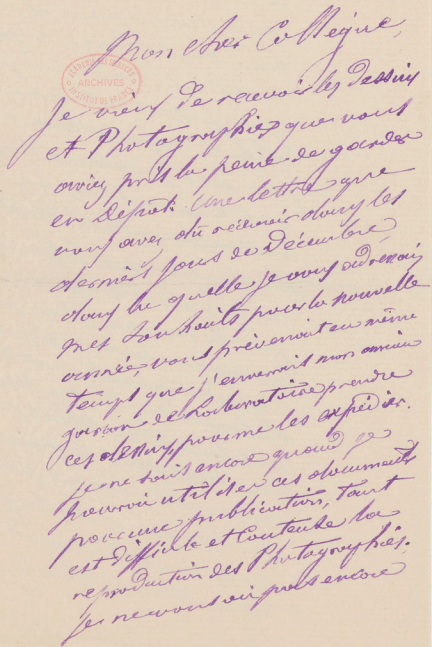 Mon cher Collègue,
ACADÉMIE DES SCIENCES
ARCHIVES
INSTITUT DE FRANCE
Je viens de recevoir les dessins
et Photographies que vous
aviez pris la peine de garder
en Dépôt. Une lettre que
vous avez dû recevoir dans les
derniers jours de Décembre
dans la quelle je vous adressais
mes souhaits pour la nouvelle
année, vous prévenait en même
temps que j'enverrais mon ancien
garçon de Laboratoire prendre
ces dessins pour me les expédier.
je ne sais encore quand je
pourrai utiliser ces documents
pour une publication, tant
est difficile et couteuse la
reproduction des Photographies.
je ne pas encore